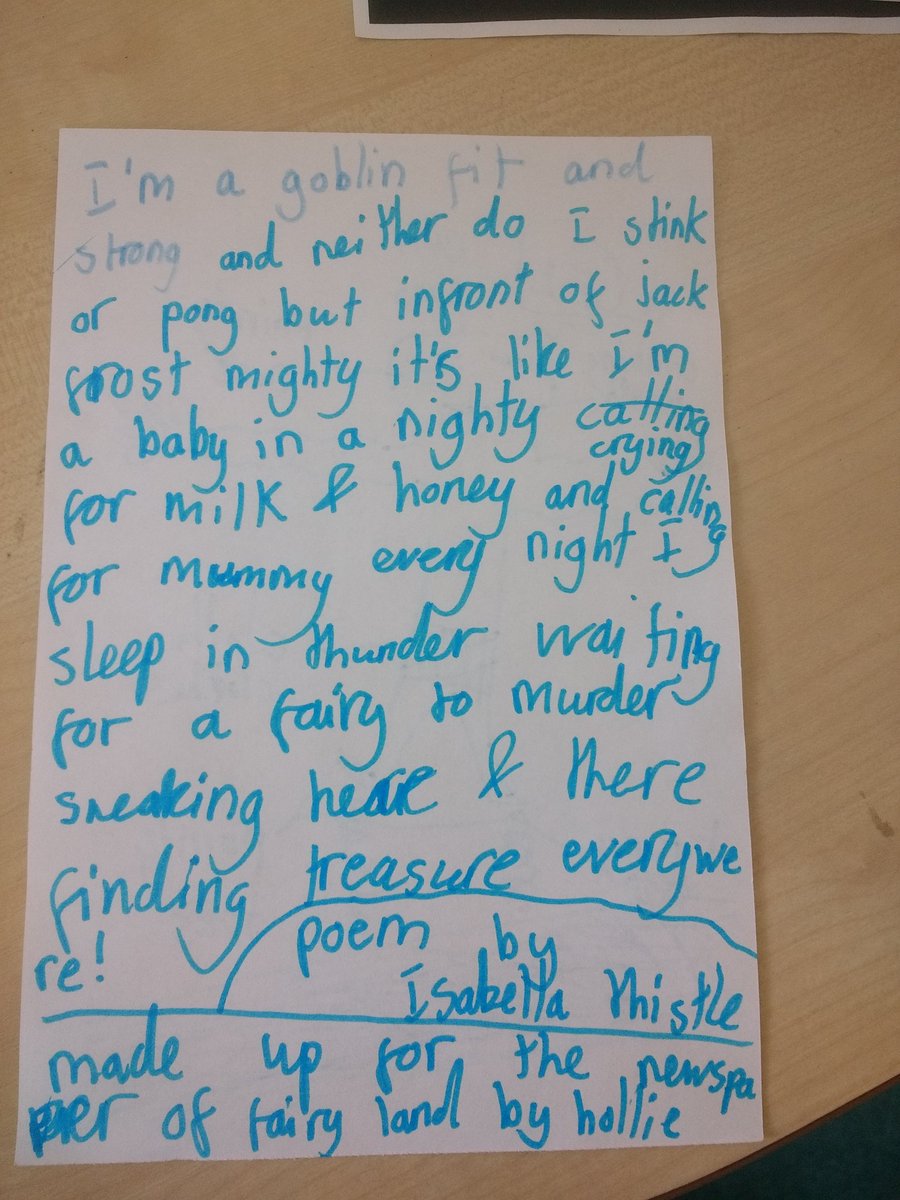 I'm a goblin fit and
strong and neither do I stink
or pong but infront of jack
frost mighty it's like I'm
a baby in a nighty calling
crying
for milk & honey and calling
for mummy every night I
sleep in thunder waiting
for a fairy to murder
sneaking heare & there
finding treasure everywe
re!
poem by
Isabella thistle
made up for the newspa
per of fairy land by hollie